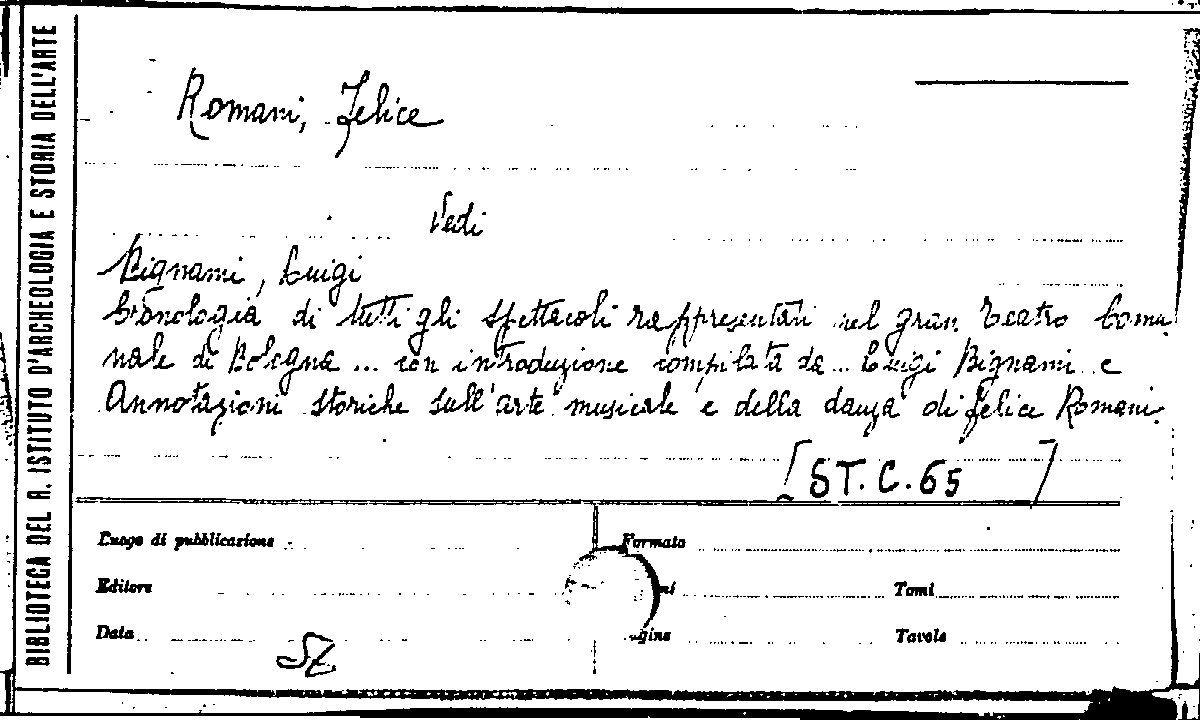 BIBLIOTECA DEL R. ISTITUTO D'ARCHEOLOGIA E STORIA DELL'ARTE
Romani, Felice
Vedi
Bignami, Luigi
Cronologia di tutti gli spettacoli rappresentati nel gran Teatro Comu
nale di Bologna ... con introduzione compilata da ... Luigi Bignami e
Annotazioni storiche sull'arte musicale e della danza di Felice Romani.
[ST. C. 65]
Luogo di pubblicazione
Formato
Editore
Tomi
Data
Tavole
SZ